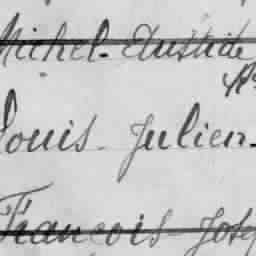 Michel - Aristide
Louis - Julien -
François - Jose